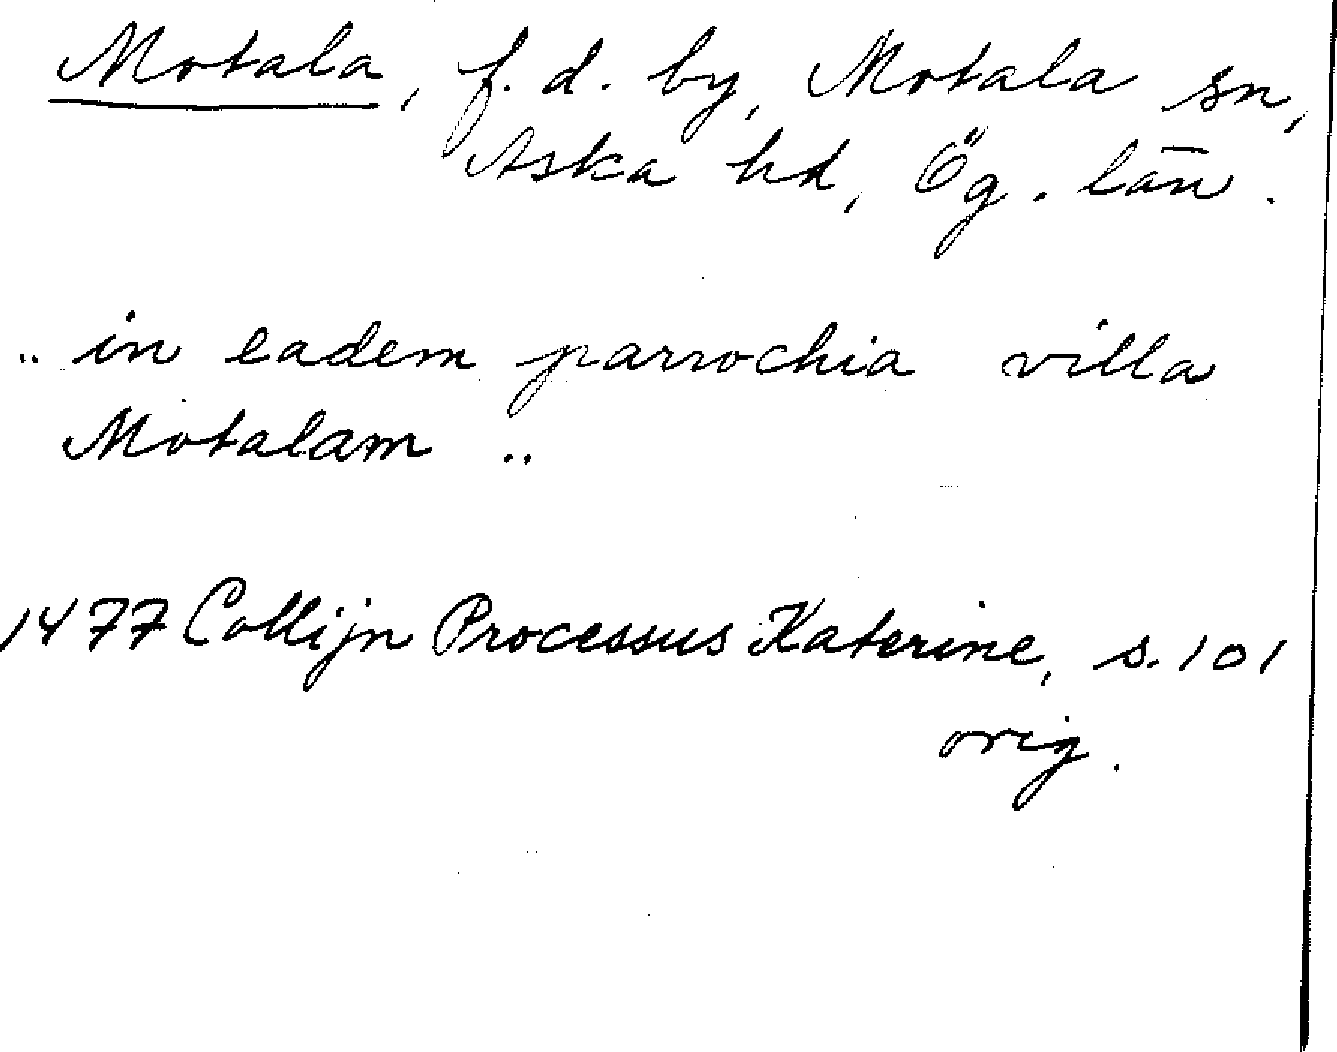 Motala, f. d. by, Motala sn,
Aska hd, Ög. län.
.. in eadem parrochia villa
Motalam ..
1477 Collijn Processus Katerine, s. 101
orig.